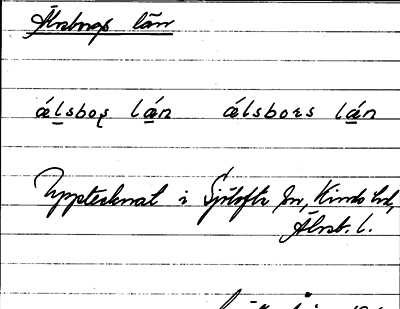 Älvsborgs län
álsboş lán álsboɛs lán
Upptecknat i Sjötofta sn, Kinds hd,
Älvsb. l.